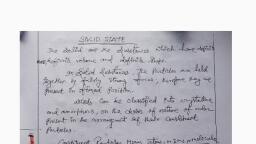 SOLID STATE
The Solid are the Substances which have definite
volume and definite shape.
In Solid Substances, The Particles are held
together by strong forces, therefore they are
Present in Position.
Solids Can be classified into crystalline
and amorphous, on the basis of nature of order
Present in the arrangement of their constituent
Particles.
Constituent Particles